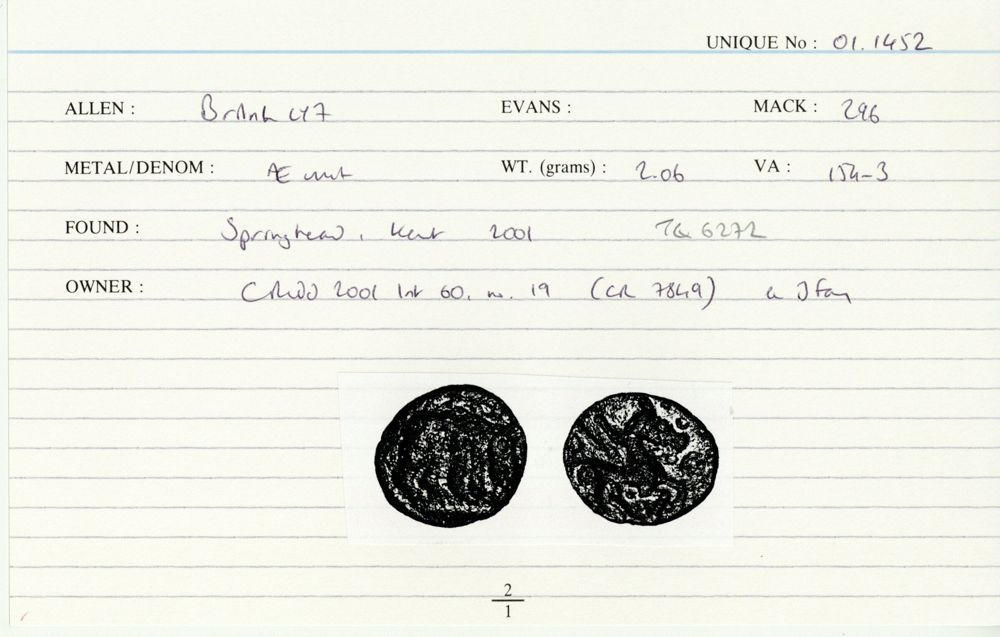 UNIQUE No : 01.1452
ALLEN : British LY7 EVANS : MACK : 296
METAL/DENOM : Æ unit WT. (grams) : 2.06 VA : 154-3
FOUND : Springhead, Kent 2001 TQ 6272
OWNER : 2001 60, no. 19 (CR 7849)
2
1